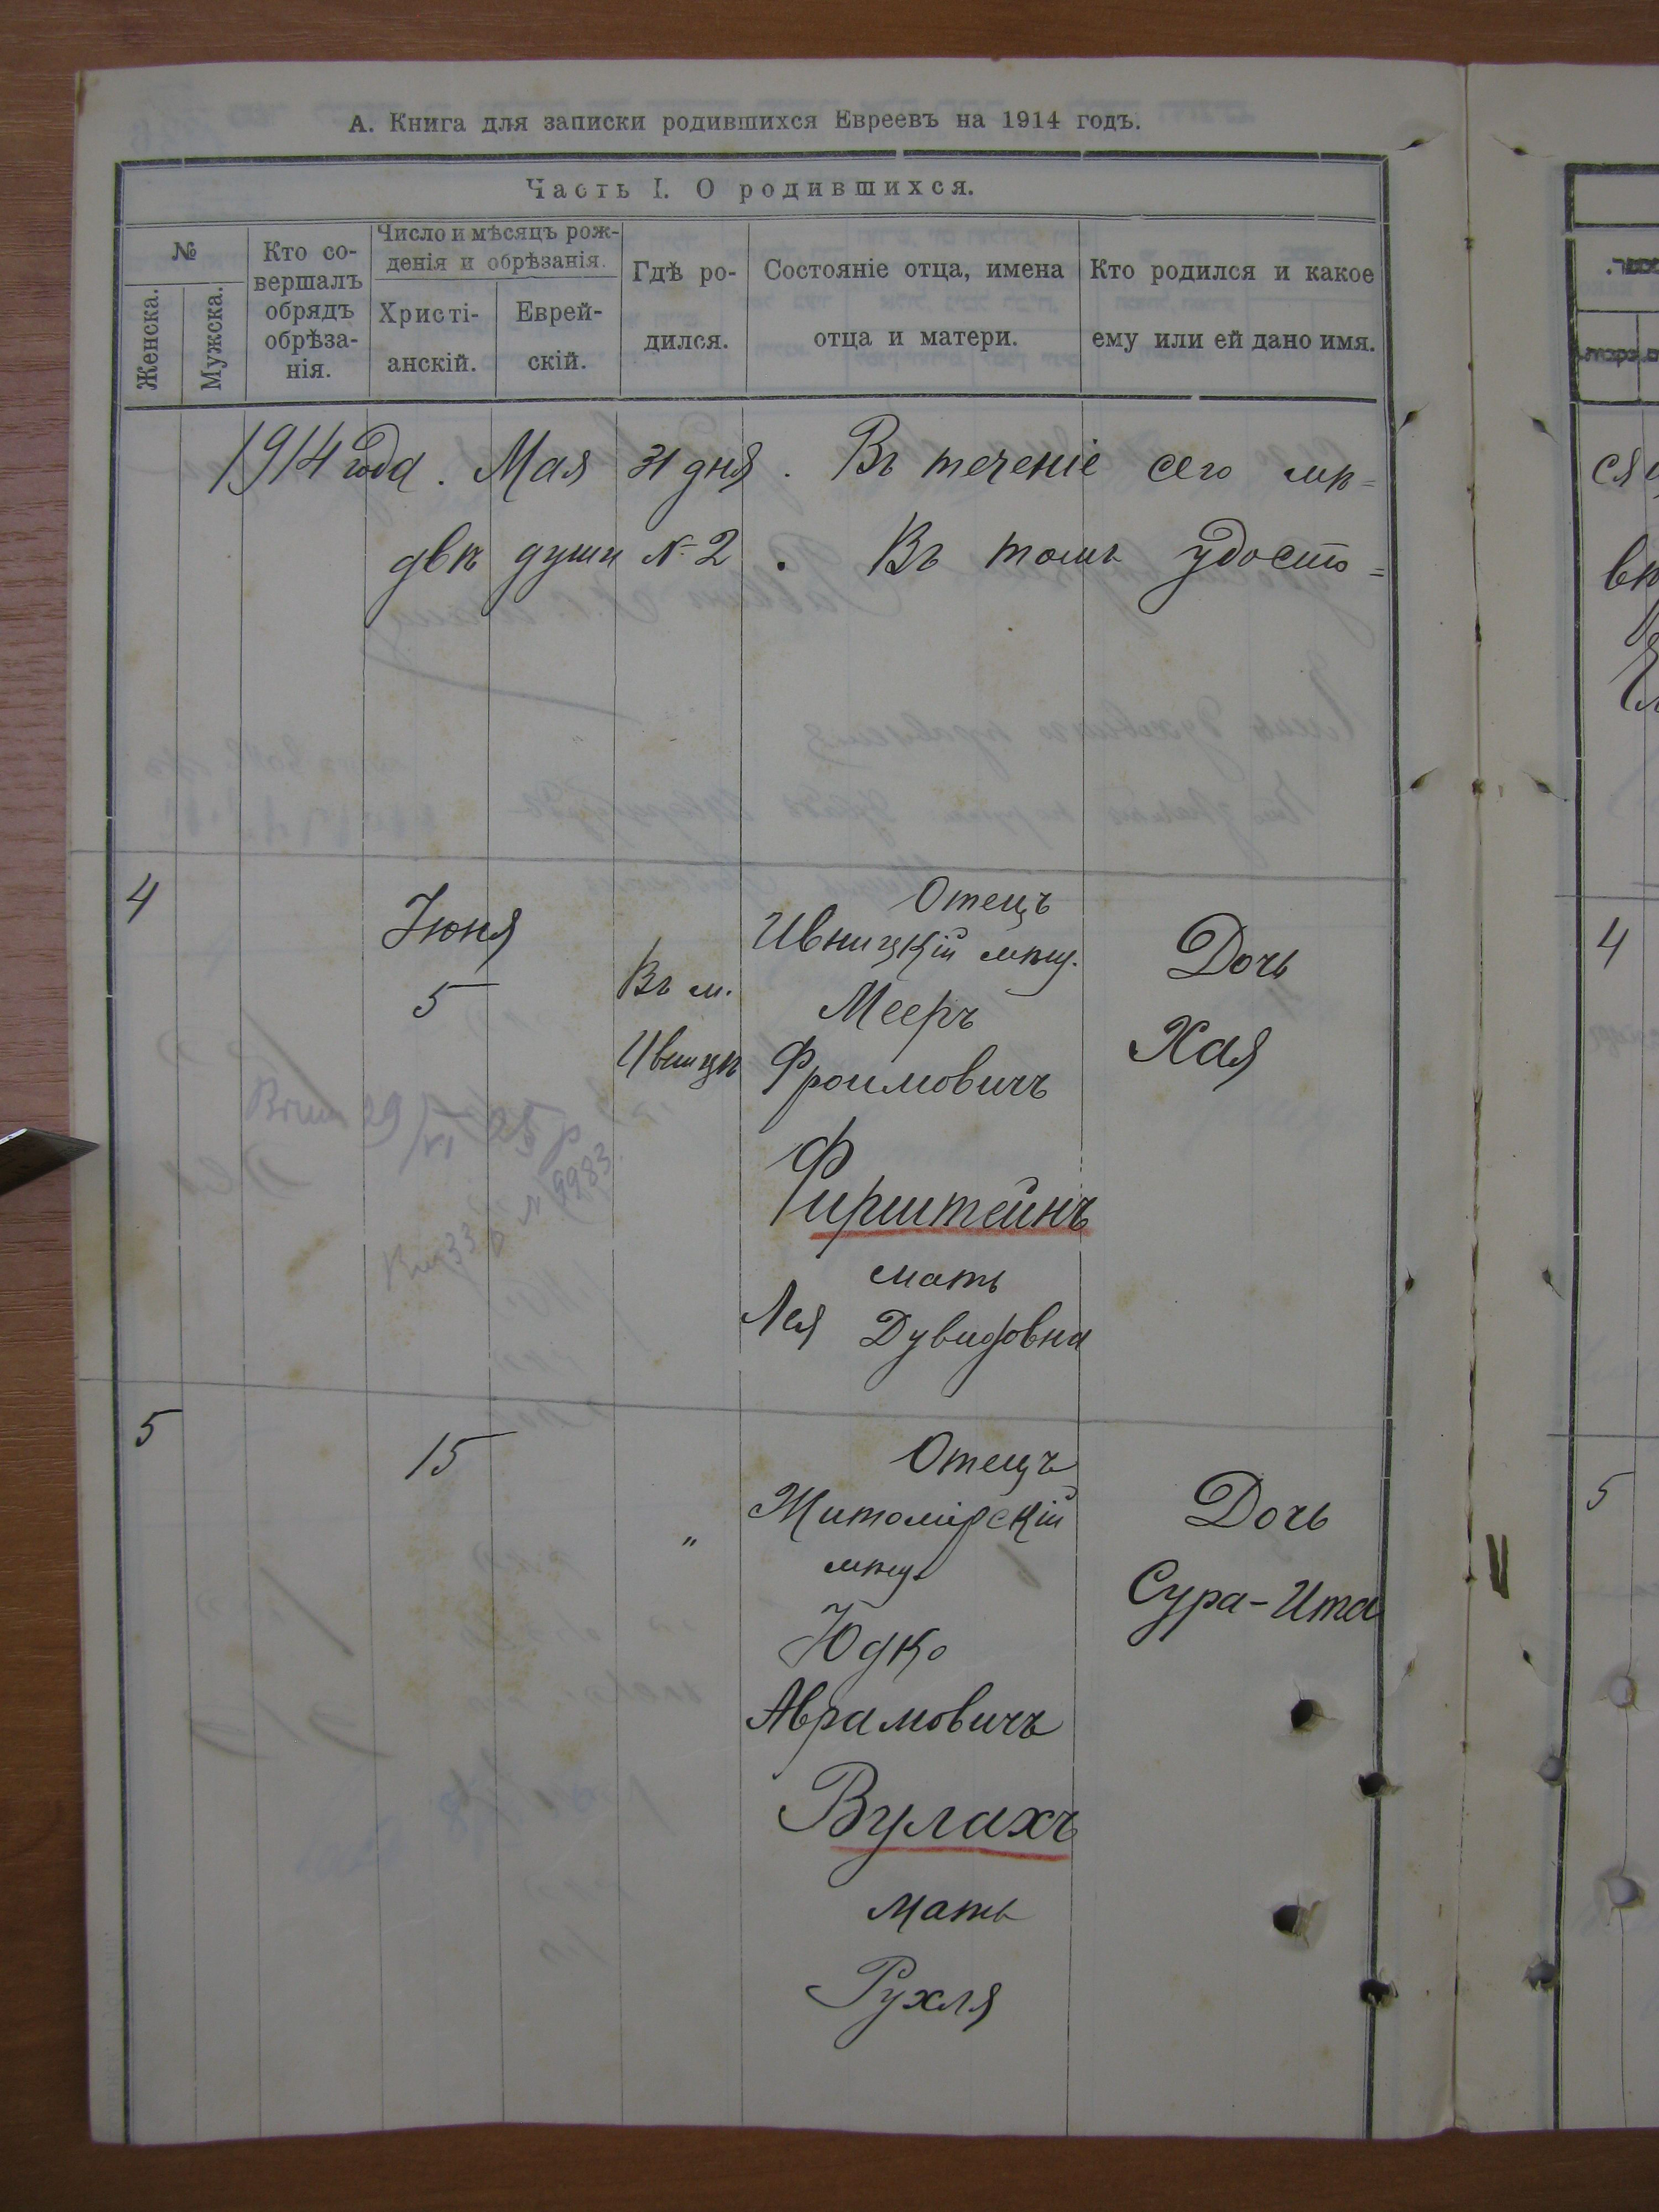 А. Книга для записки родившихся Евреевъ на 1914 годъ.
Часть I. О родившихся.
№
Женска.
Мужска.
Кто со-
вершалъ
обрядъ
обрѣза-
нія.
Число и мѣсяцъ рож-
денія и обрѣзанія.
Христі-
анскій.
Еврей-
скій.
Гдѣ ро-
дился.
Состояніе отца, имена
отца и матери.
Кто родился и какое
ему или ей дано имя.
1914 года. Мая 31 дня. Въ теченіе сего мѣ=
двѣ души № 2. Въ томъ удосто=
4
Іюня
5
Въ м.
Ивницѣ
Отецъ
Ивницкій мѣщ.
Мееръ
Фроимовичъ
Фирштейнъ
мать
Лея Дувидовна
Дочь
Хая
29/VI 25 р
№ 9983
5
15
"
Отецъ
Житомірскій
мѣщ.
Юдко
Аврамовичъ
Вулахъ
мать
Рухля
Дочь
Сура-Ита
4
5